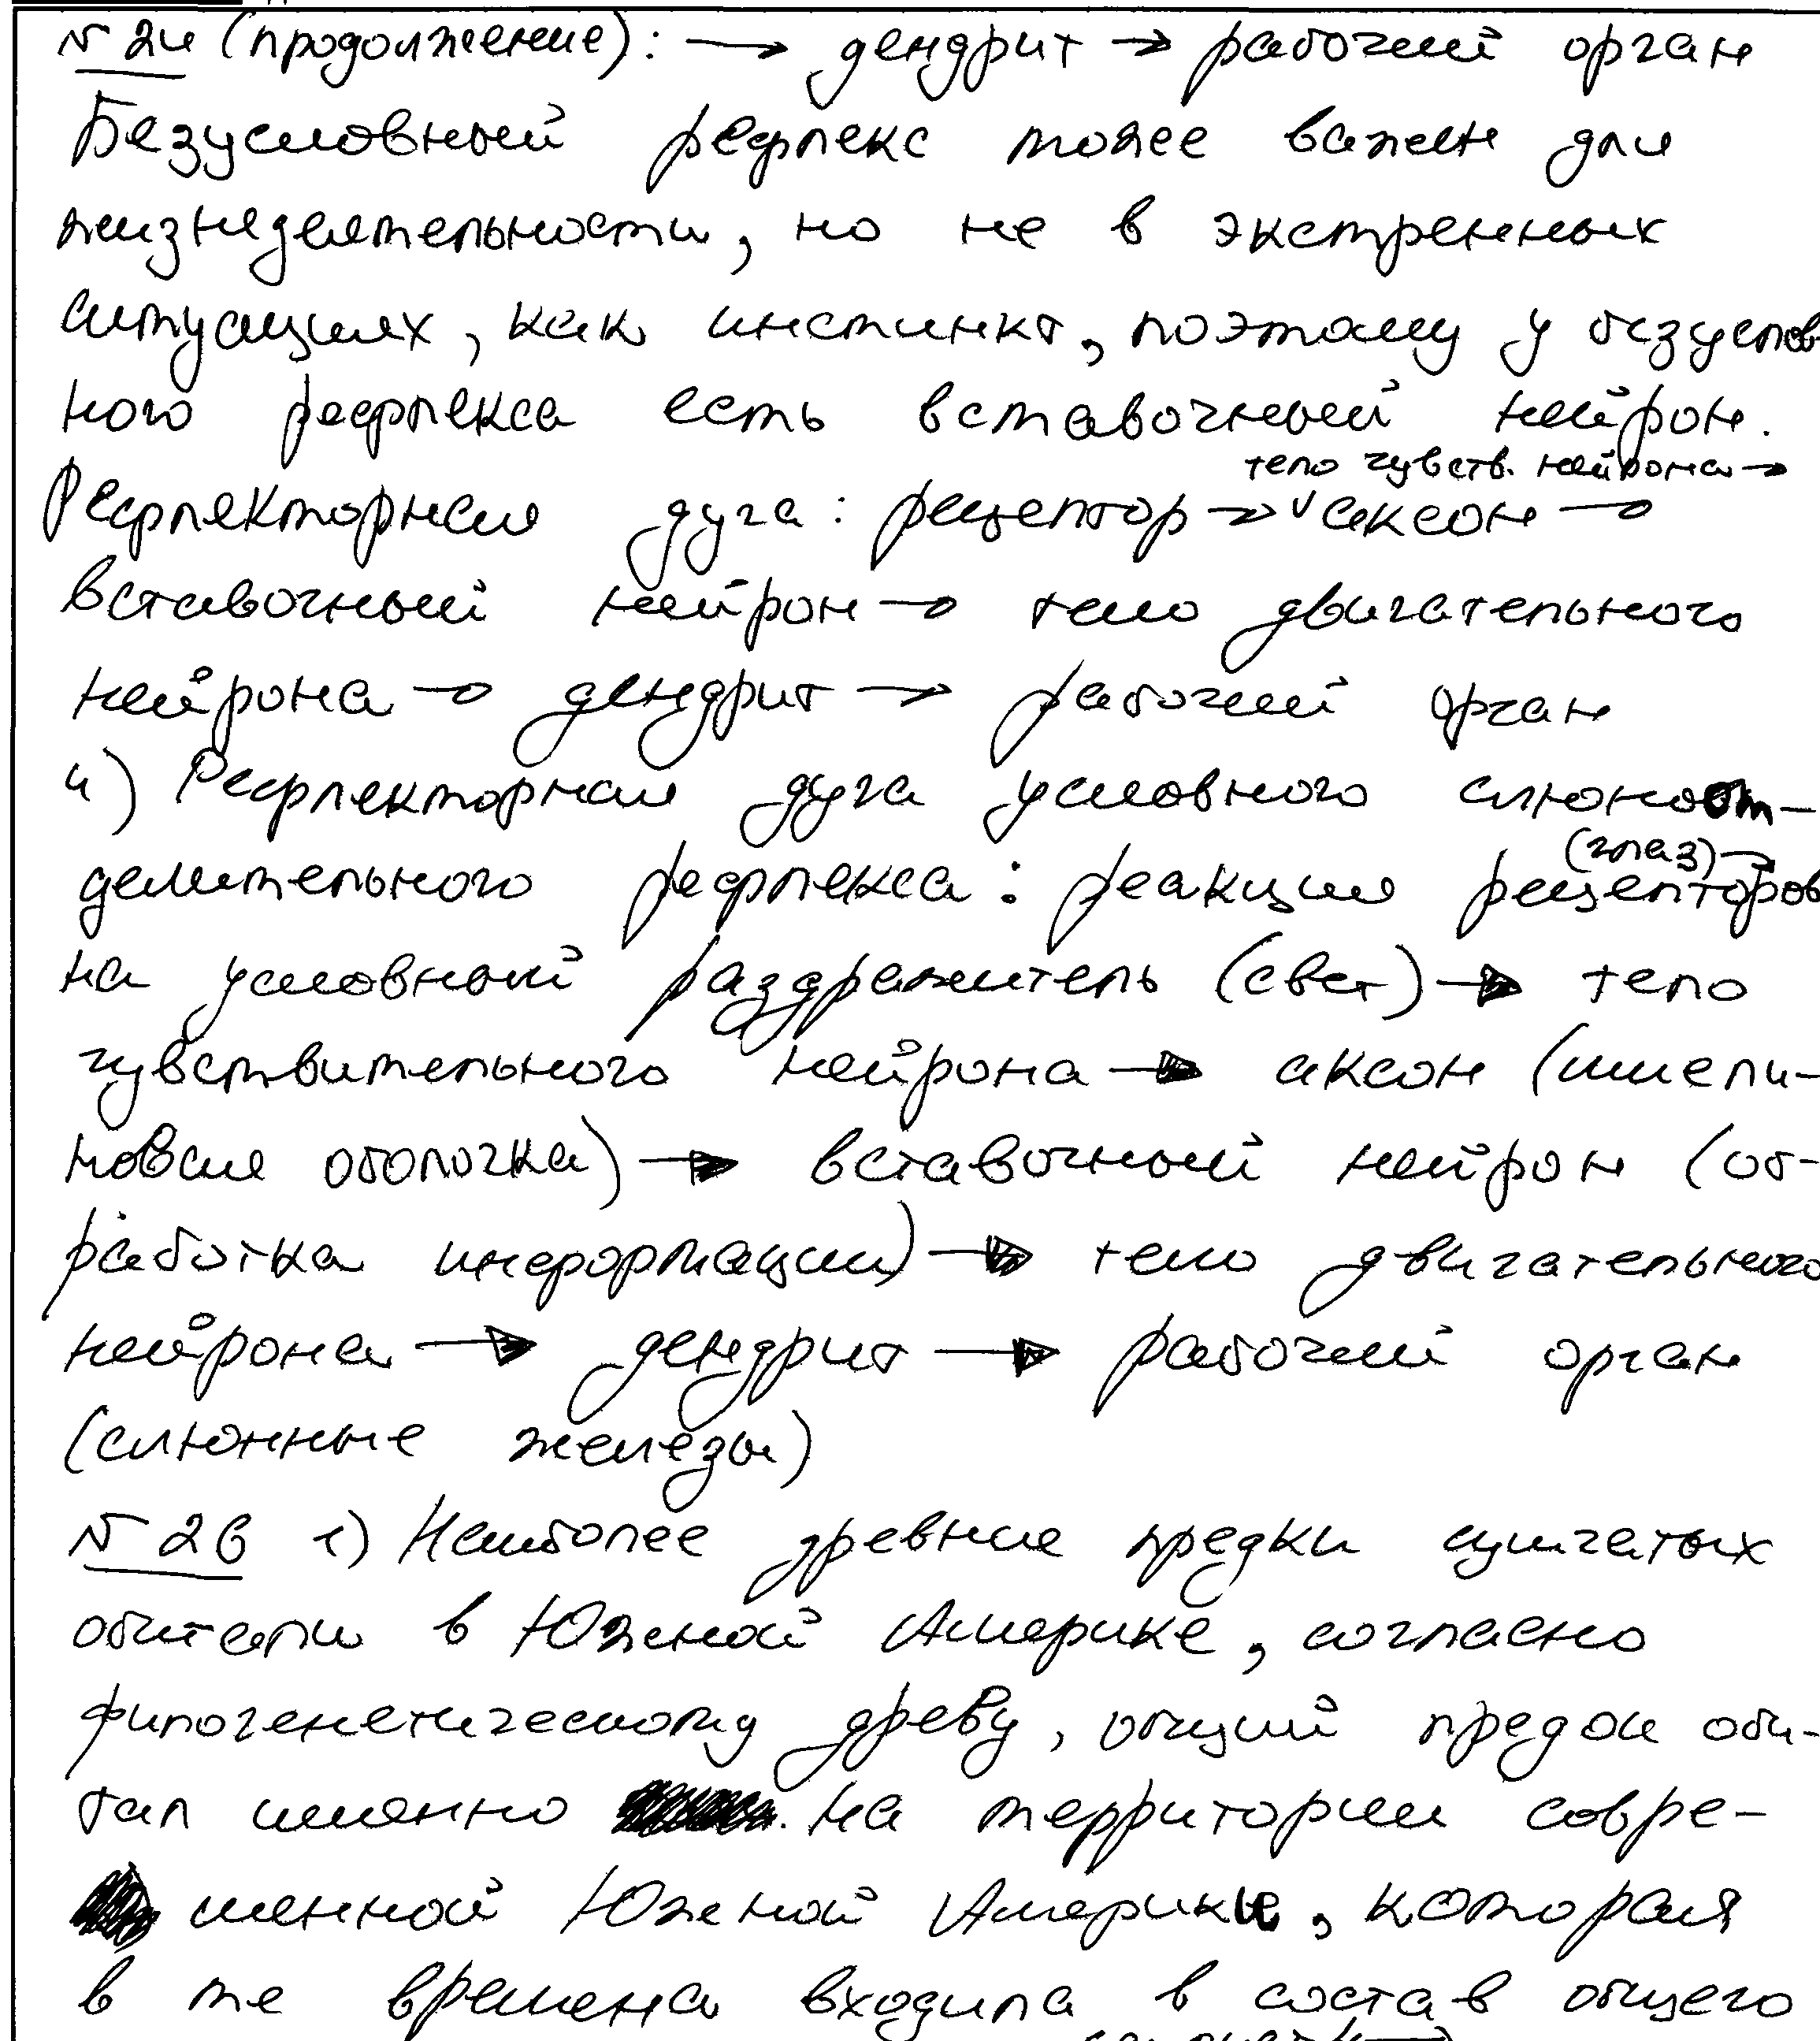 № 24 (продолжение): → дендрит → рабочий орган
Безусловный рефлекс тоже важен для
жизнедеятельности, но не в экстренных
ситуациях, как инстинкт, поэтому у безуслов-
ного рефлекса есть вставочный нейрон.
тело чувств. нейрона →
Рефлекторная дуга: рецептор → ∨ аксон →
вставочный нейрон → тело двигательного
нейрона → дендрит → рабочий орган
4) Рефлекторная дуга условного слюноот-
(глаз) →
делительного рефлекса: реакция рецепторов
на условный раздражитель (свет) → тело
чувствительного нейрона → аксон (миели-
новая оболочка) → вставочный нейрон (об-
работка информации) → тело двигательного
нейрона → дендрит → рабочий орган
(слюнные железы)
№ 26 1) Наиболее древние предки сумчатых
обитали в Южной Америке, согласно
филогенетическому древу, общий предок оби-
тал именно на территории совре-
менной Южной Америки, которая
в те времена входила в состав общего